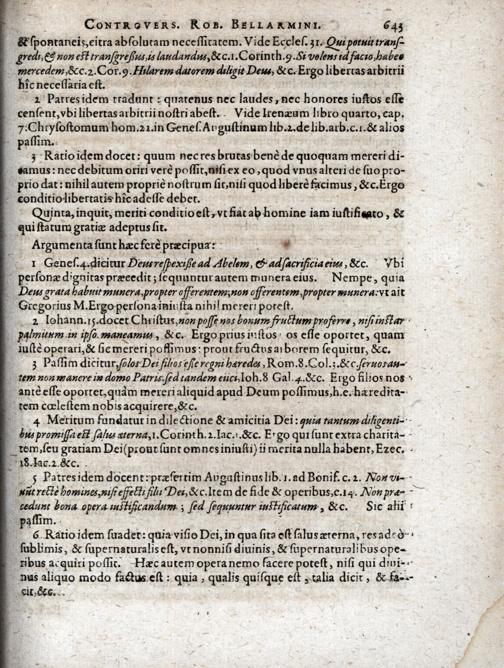 CONTROVERS. ROB. BELLARMINI. 643
& spontaneis, citra absolutam necessitatem. Vide Eccles. 31. Qui potuit transgredi,
& non est transgressus, is laudandus, &c. 1. Corinth. 9. Si volens id facio, habeo
mercedem, &c. 2. Cor. 9. Hilarem datorem diligit Deus, &c. Ergo libertas arbitrii
hîc necessaria est.
2 Patres idem tradunt: quatenus nec laudes, nec honores iustos esse
censent, vbi libertas arbitrii nostri abest. Vide Irenæum libro quarto, cap.
7. Chrysostomum hom. 21. in Genes. Augustinum lib. 2. de lib. arb. c. 1. & alios
passim.
3 Ratio idem docet: quum nec res brutas benè de quoquam mereri dicamus:
nec debitum oriri verè possit, nisi ex eo, quod vnus alteri de suo proprio
dat: nihil autem propriè nostrum sit, nisi quod liberè facimus, &c. Ergo
conditio libertatis hîc adesse debet.
Quinta, inquit, meriti conditio est, vt fiat ab homine iam iustificato, &
qui statum gratiæ adeptus sit.
Argumenta sunt hæc ferè præcipua:
1 Genes. 4. dicitur Deus respexisse ad Abelem, & ad sacrificia eius, &c. Vbi
personæ dignitas præcedit; sequuntur autem munera eius. Nempe, quia
Deus grata habuit munera, propter offerentem; non offerentem, propter munera: vt ait
Gregorius M. Ergo persona iniusta nihil mereri potest.
2 Iohann. 15. docet Christus, non posse nos bonum fructum proferre, nisi instar
palmitum in ipso. maneamus, &c. Ergo prius iustos os esse oportet, quam
iustè operari, & sic mereri possimus: prout fructus arborem sequitur, &c.
3 Passim dicitur, solos Dei filios esse regni hæredes, Rom. 8. Col. 3. &c. seruos autem
non manere in domo Patris. sed tandem eiici, Ioh. 8 Gal. 4. &c. Ergo filios nos
antè esse oportet, quàm mereri aliquid apud Deum possimus, h. e. hæreditatem
cœlestem nobis acquirere, &c.
4 Meritum fundatur in dilectione & amicitia Dei: quia tantum diligentibus
promissa est salus æterna, 1. Corinth. 2. Iac. 1. &c. Ergo qui sunt extra charitatem,
seu gratiam Dei (prout sunt omnes iniusti) ii merita nulla habent, Ezec.
18. Iac. 2. &c.
5 Patres idem docent: præsertim Augustinus lib. 1. ad Bonif. c. 2. Non viuunt
rectè homines, nisi effecti filii Dei, &c. Item de fide & operibus, c. 14. Non præcedunt
bona opera iustificandum; sed sequuntur iustificatum, &c. Sic alii
passim.
6 Ratio idem suadet: quia visio Dei, in qua sita est salus æterna, res adeò
sublimis, & supernaturalis est, vt nonnisi diuinis, & supernaturalibus operibus
acquiri possit. Hæc autem opera nemo facere potest, nisi qui diuinus
aliquo modo factus est: quia, qualis quisque est, talia dicit, & facit,
&c.